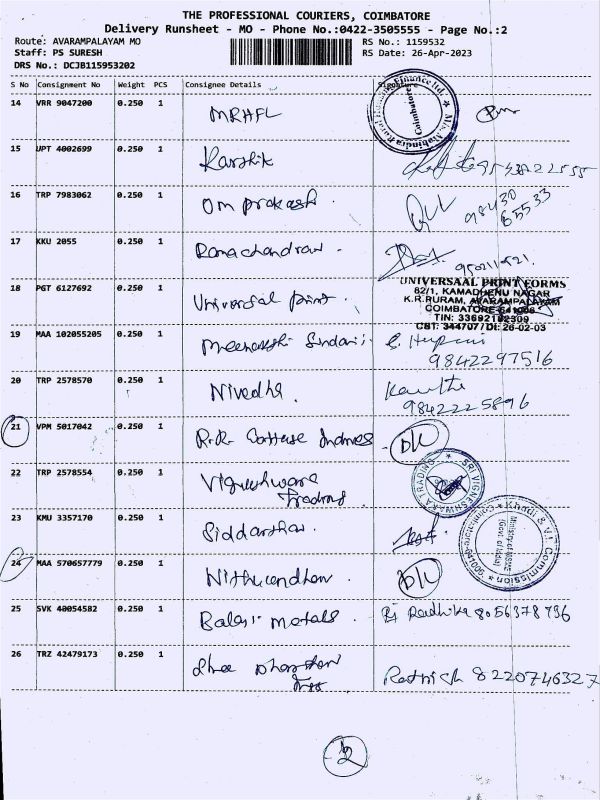 THE PROFESSIONAL COURIERS, COIMBATORE
Delivery Runsheet - MO - Phone No.:0422-3505555 - Page No.:2
Route: AVARAMPALAYAM MO RS No.: 1159532
Staff: PS SURESH RS Date: 26-Apr-2023
DRS No.: DCJB115953202
S No Consignment No Weight PCS Consignee Details Signature
14 VRR 9047200 0.250 1 MRHFL
15 UPT 4002699 0.250 1 Karthik
16 TRP 7983062 0.250 1 Om prakash. 98430
65533
17 KKU 2055 0.250 1 Ramachandran.
18 PGT 6127692 0.250 1 Universal print.
UNIVERSAAL PRINT FORMS
82/1, KAMADHENU NAGAR
K.R.PURAM, AVARAMPALAYAM
COIMBATORE-641006
TIN: 33692102309
CST: 344707/Dt: 26-02-03
19 MAA 102055205 0.250 1 Meenakshi Sundari
9842297516
20 TRP 2578570 0.250 1 Nivedha. Kavitha
9842225896
21 VPM 5017042 0.250 1 R.R. D/L
22 TRP 2578554 0.250 1 Vigneshwara
Trading
SRI VIGNESHWARA TRADING
23 KMU 3357170 0.250 1 Siddarthan.
Khadi & V.I. Commission
Ministry of MSME
Govt. of India
24 MAA 570657779 0.250 1 D/L
25 SVK 40054582 0.250 1 Balaji metals. Radhika 8056378796
26 TRZ 42479173 0.250 1 Shree 8220746327
2